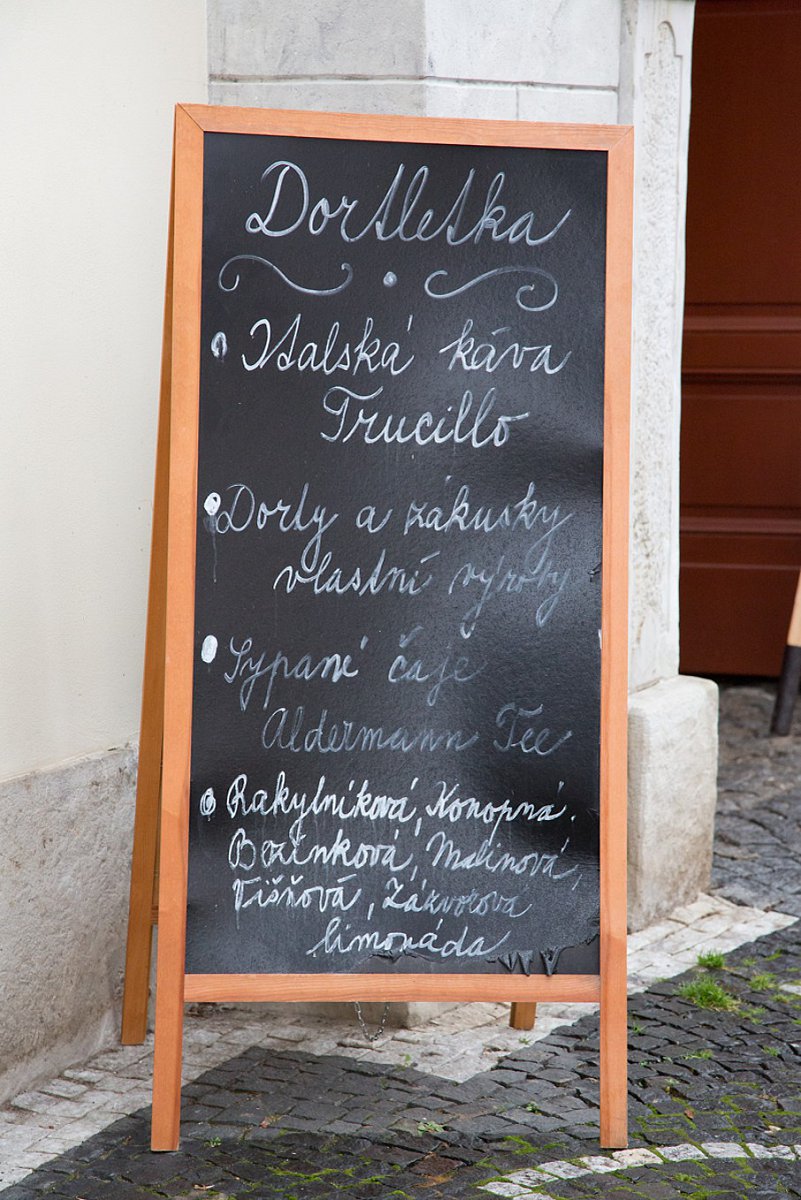 Dortletka
• Italská káva
Trucillo
• Dorty a zákusky
vlastní výroby
• Sypané čaje
Aldermann Tee
• Rakylníková, Konopná.
Bezinková, Malinová,
Višňová, Zázvorová
limonáda